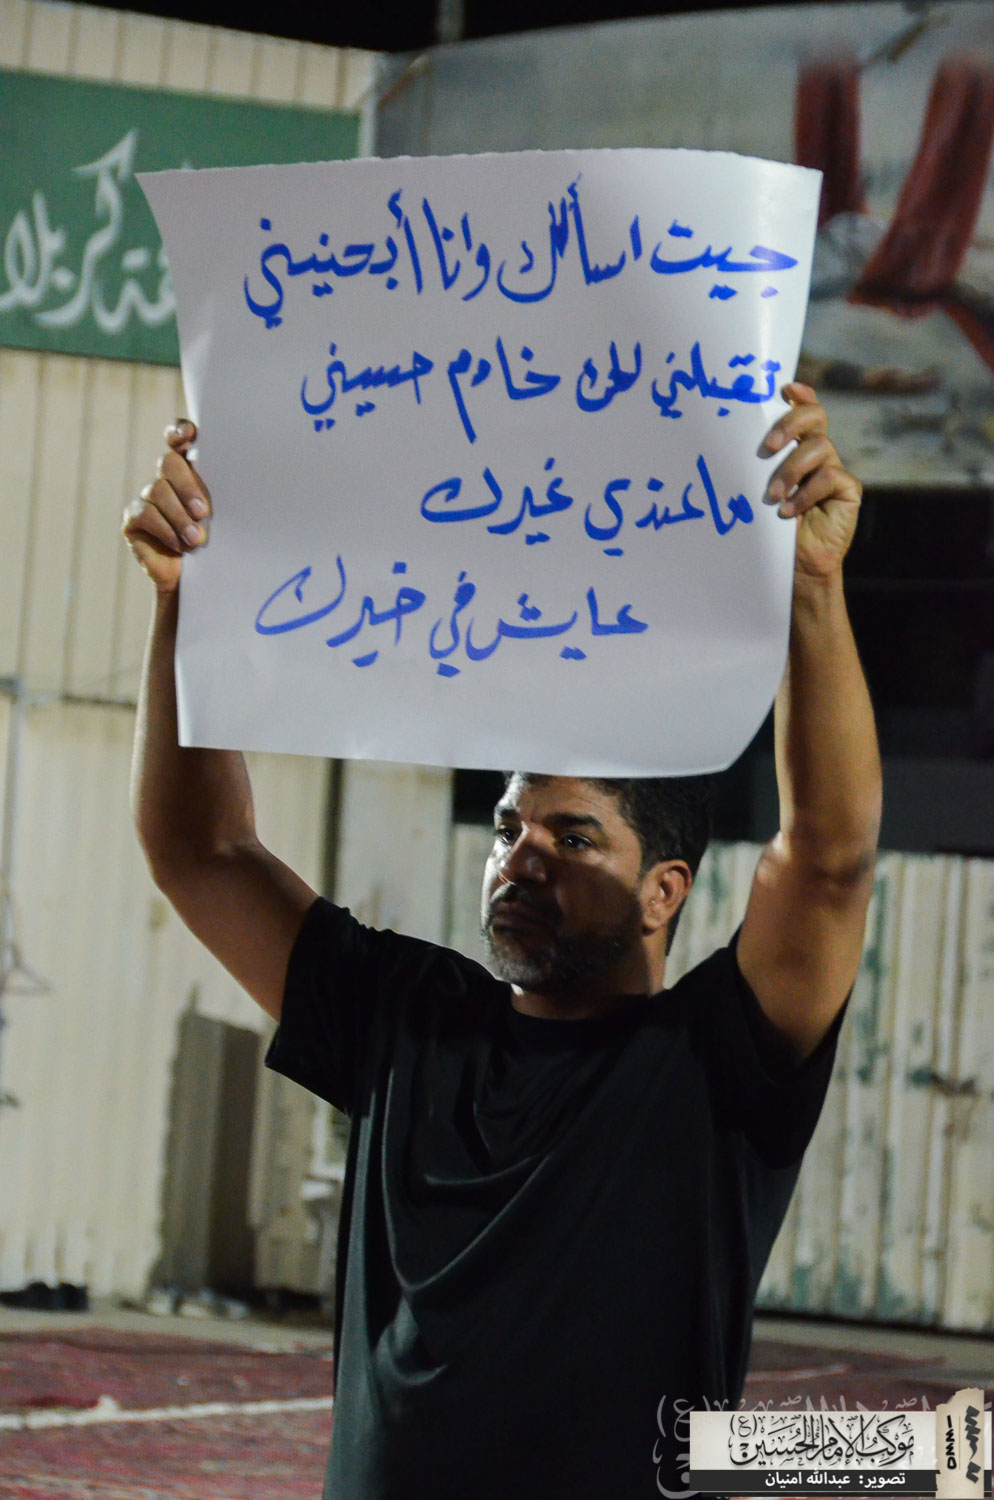 جيت اسألك وانا أبحنيني
تقبلني الك خادم حسيني
ما عندي غيرك
عايش في خيرك
كربلا
موكب الإمام الحسين (ع)
تصوير: عبدالله امنيان